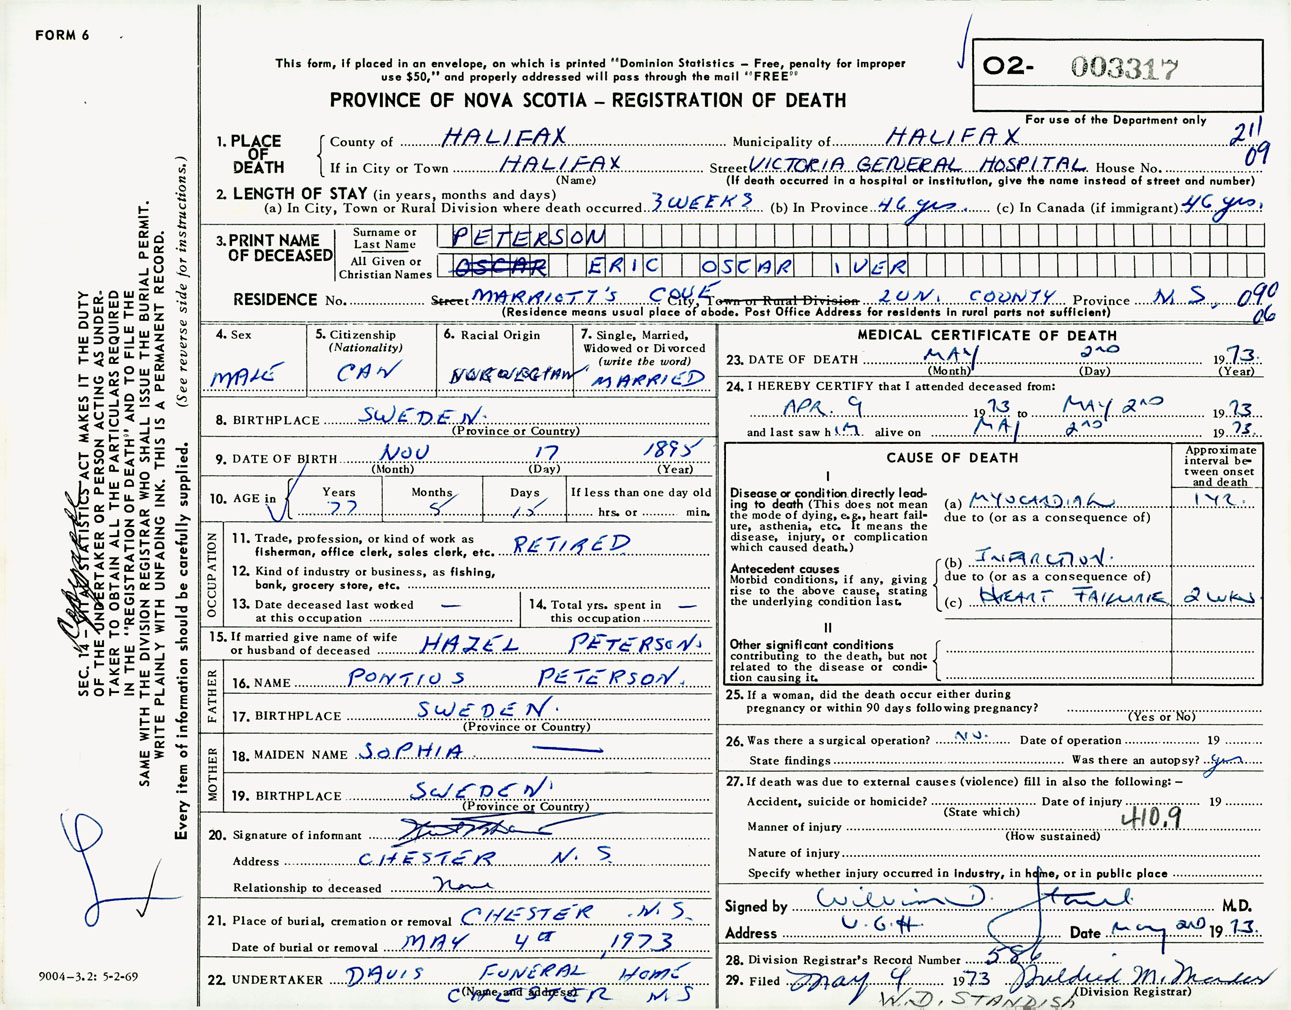 FORM 6
This form, if placed in an envelope, on which is printed "Dominion Statistics – Free, penalty for improper
use $50," and properly addressed will pass through the mail "FREE"
PROVINCE OF NOVA SCOTIA – REGISTRATION OF DEATH
O2- 003317
For use of the Department only
211
09
1. PLACE OF DEATH
County of HALIFAX Municipality of HALIFAX
If in City or Town HALIFAX Street VICTORIA GENERAL HOSPITAL House No.
(Name) (If death occurred in a hospital or institution, give the name instead of street and number)
2. LENGTH OF STAY (in years, months and days)
(a) In City, Town or Rural Division where death occurred 3 WEEKS (b) In Province 46 yrs. (c) In Canada (if immigrant) 46 yrs.
3. PRINT NAME OF DECEASED
Surname or Last Name PETERSON
All Given or Christian Names OSCAR ERIC OSCAR IVER
RESIDENCE No. Street MARRIOTT'S COVE City, Town or Rural Division LUN. COUNTY Province N.S, 090
06
(Residence means usual place of abode. Post Office Address for residents in rural parts not sufficient)
4. Sex
MALE
5. Citizenship
(Nationality)
CAN
6. Racial Origin
NORWEGIAN
7. Single, Married,
Widowed or Divorced
(write the word)
MARRIED
8. BIRTHPLACE SWEDEN.
(Province or Country)
9. DATE OF BIRTH NOV 17 1895
(Month) (Day) (Year)
10. AGE in
Years Months Days If less than one day old
77 5 15 hrs. or min.
OCCUPATION
11. Trade, profession, or kind of work as
fisherman, office clerk, sales clerk, etc. RETIRED
12. Kind of industry or business, as fishing,
bank, grocery store, etc.
13. Date deceased last worked
at this occupation —
14. Total yrs. spent in
this occupation —
15. If married give name of wife
or husband of deceased HAZEL PETERSON.
FATHER
16. NAME PONTIUS PETERSON.
17. BIRTHPLACE SWEDEN.
(Province or Country)
MOTHER
18. MAIDEN NAME SOPHIA —
19. BIRTHPLACE SWEDEN.
(Province or Country)
20. Signature of informant
Address CHESTER N.S.
Relationship to deceased None
21. Place of burial, cremation or removal CHESTER N.S.
Date of burial or removal MAY 4th 1973
22. UNDERTAKER DAVIS FUNERAL HOME
(Name and address)
CHESTER NS
MEDICAL CERTIFICATE OF DEATH
23. DATE OF DEATH MAY 2nd 1973.
(Month) (Day) (Year)
24. I HEREBY CERTIFY that I attended deceased from:
APR. 9 1973 to MAY 2nd 1973
and last saw him alive on MAY 2nd 1973.
CAUSE OF DEATH
Approximate
interval be-
tween onset
and death
I
Disease or condition directly lead-
ing to death (This does not
mean the mode of dying, e.g., heart fail-
ure, asthenia, etc. It means the
disease, injury, or complication
which caused death.)
(a) MYOCARDIAL 1 YR.
due to (or as a consequence of)
Antecedent causes
Morbid conditions, if any, giving
rise to the above cause, stating
the underlying condition last.
(b) INFARCTION.
due to (or as a consequence of)
(c) HEART FAILURE 2 WKS
II
Other significant conditions
contributing to the death, but not
related to the disease or condi-
tion causing it.
25. If a woman, did the death occur either during
pregnancy or within 90 days following pregnancy?
(Yes or No)
26. Was there a surgical operation? No. Date of operation 19
State findings Was there an autopsy? yes
27. If death was due to external causes (violence) fill in also the following: –
Accident, suicide or homicide? Date of injury 19
(State which)
410.9
Manner of injury
(How sustained)
Nature of injury
Specify whether injury occurred in Industry, in home, or in public place
Signed by William D. M.D.
Address V.G.H. Date May 2nd 1973.
28. Division Registrar's Record Number 586
29. Filed May 4 1973 Mildred M.
(Division Registrar)
W.D. STANDISH
SEC. 14 – VITAL STATISTICS ACT MAKES IT THE DUTY
OF THE UNDERTAKER OR PERSON ACTING AS UNDER-
TAKER TO OBTAIN ALL THE PARTICULARS REQUIRED
IN THE "REGISTRATION OF DEATH" AND TO FILE THE
SAME WITH THE DIVISION REGISTRAR WHO SHALL ISSUE THE BURIAL PERMIT.
WRITE PLAINLY WITH UNFADING INK. THIS IS A PERMANENT RECORD.
Every item of information should be carefully supplied. (See reverse side for instructions.)
9004–3.2: 5-2-69